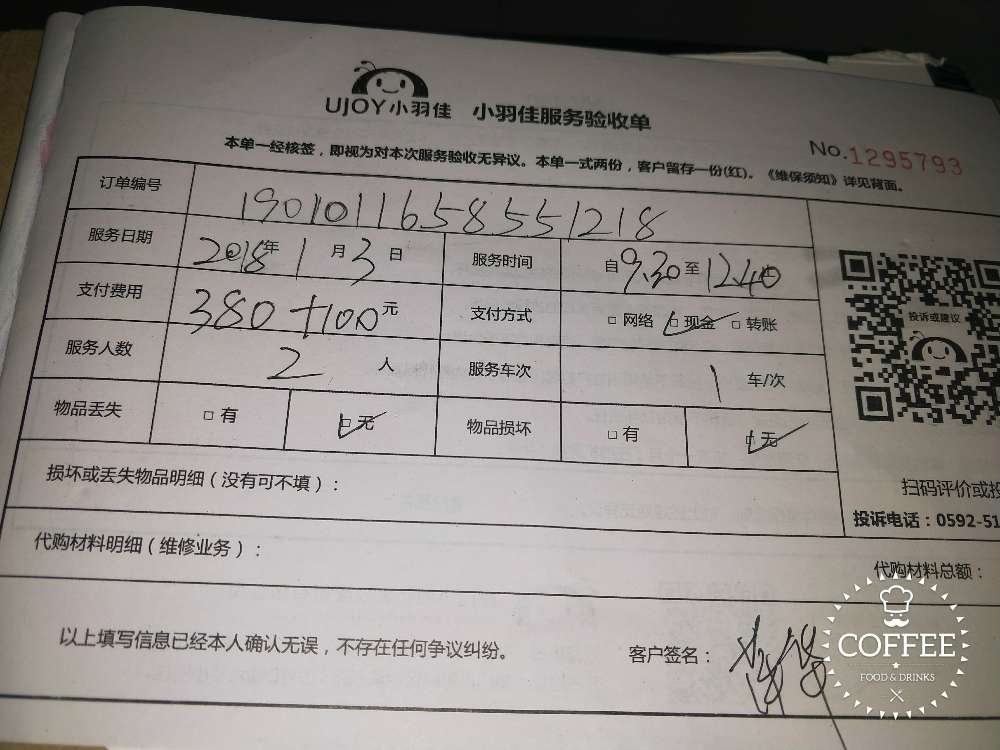 UJOY小羽佳 小羽佳服务验收单
No.1295793
本单一经核签，即视为对本次服务验收无异议。本单一式两份，客户留存一份(红)。《维保须知》详见背面。
订单编号 190101165855 1218
服务日期 2018年1月3日 服务时间 自9.30至12.40
支付费用 380+100元 支付方式 □网络 □现金 □转账
投诉或建议
服务人数 2人 服务车次 1车/次
物品丢失 □有 □无 物品损坏 □有 □无
损坏或丢失物品明细（没有可不填）：
扫码评价或投
投诉电话：0592-51
代购材料明细（维修业务）：
代购材料总额：
以上填写信息已经本人确认无误，不存在任何争议纠纷。 客户签名：
COFFEE
FOOD & DRINKS